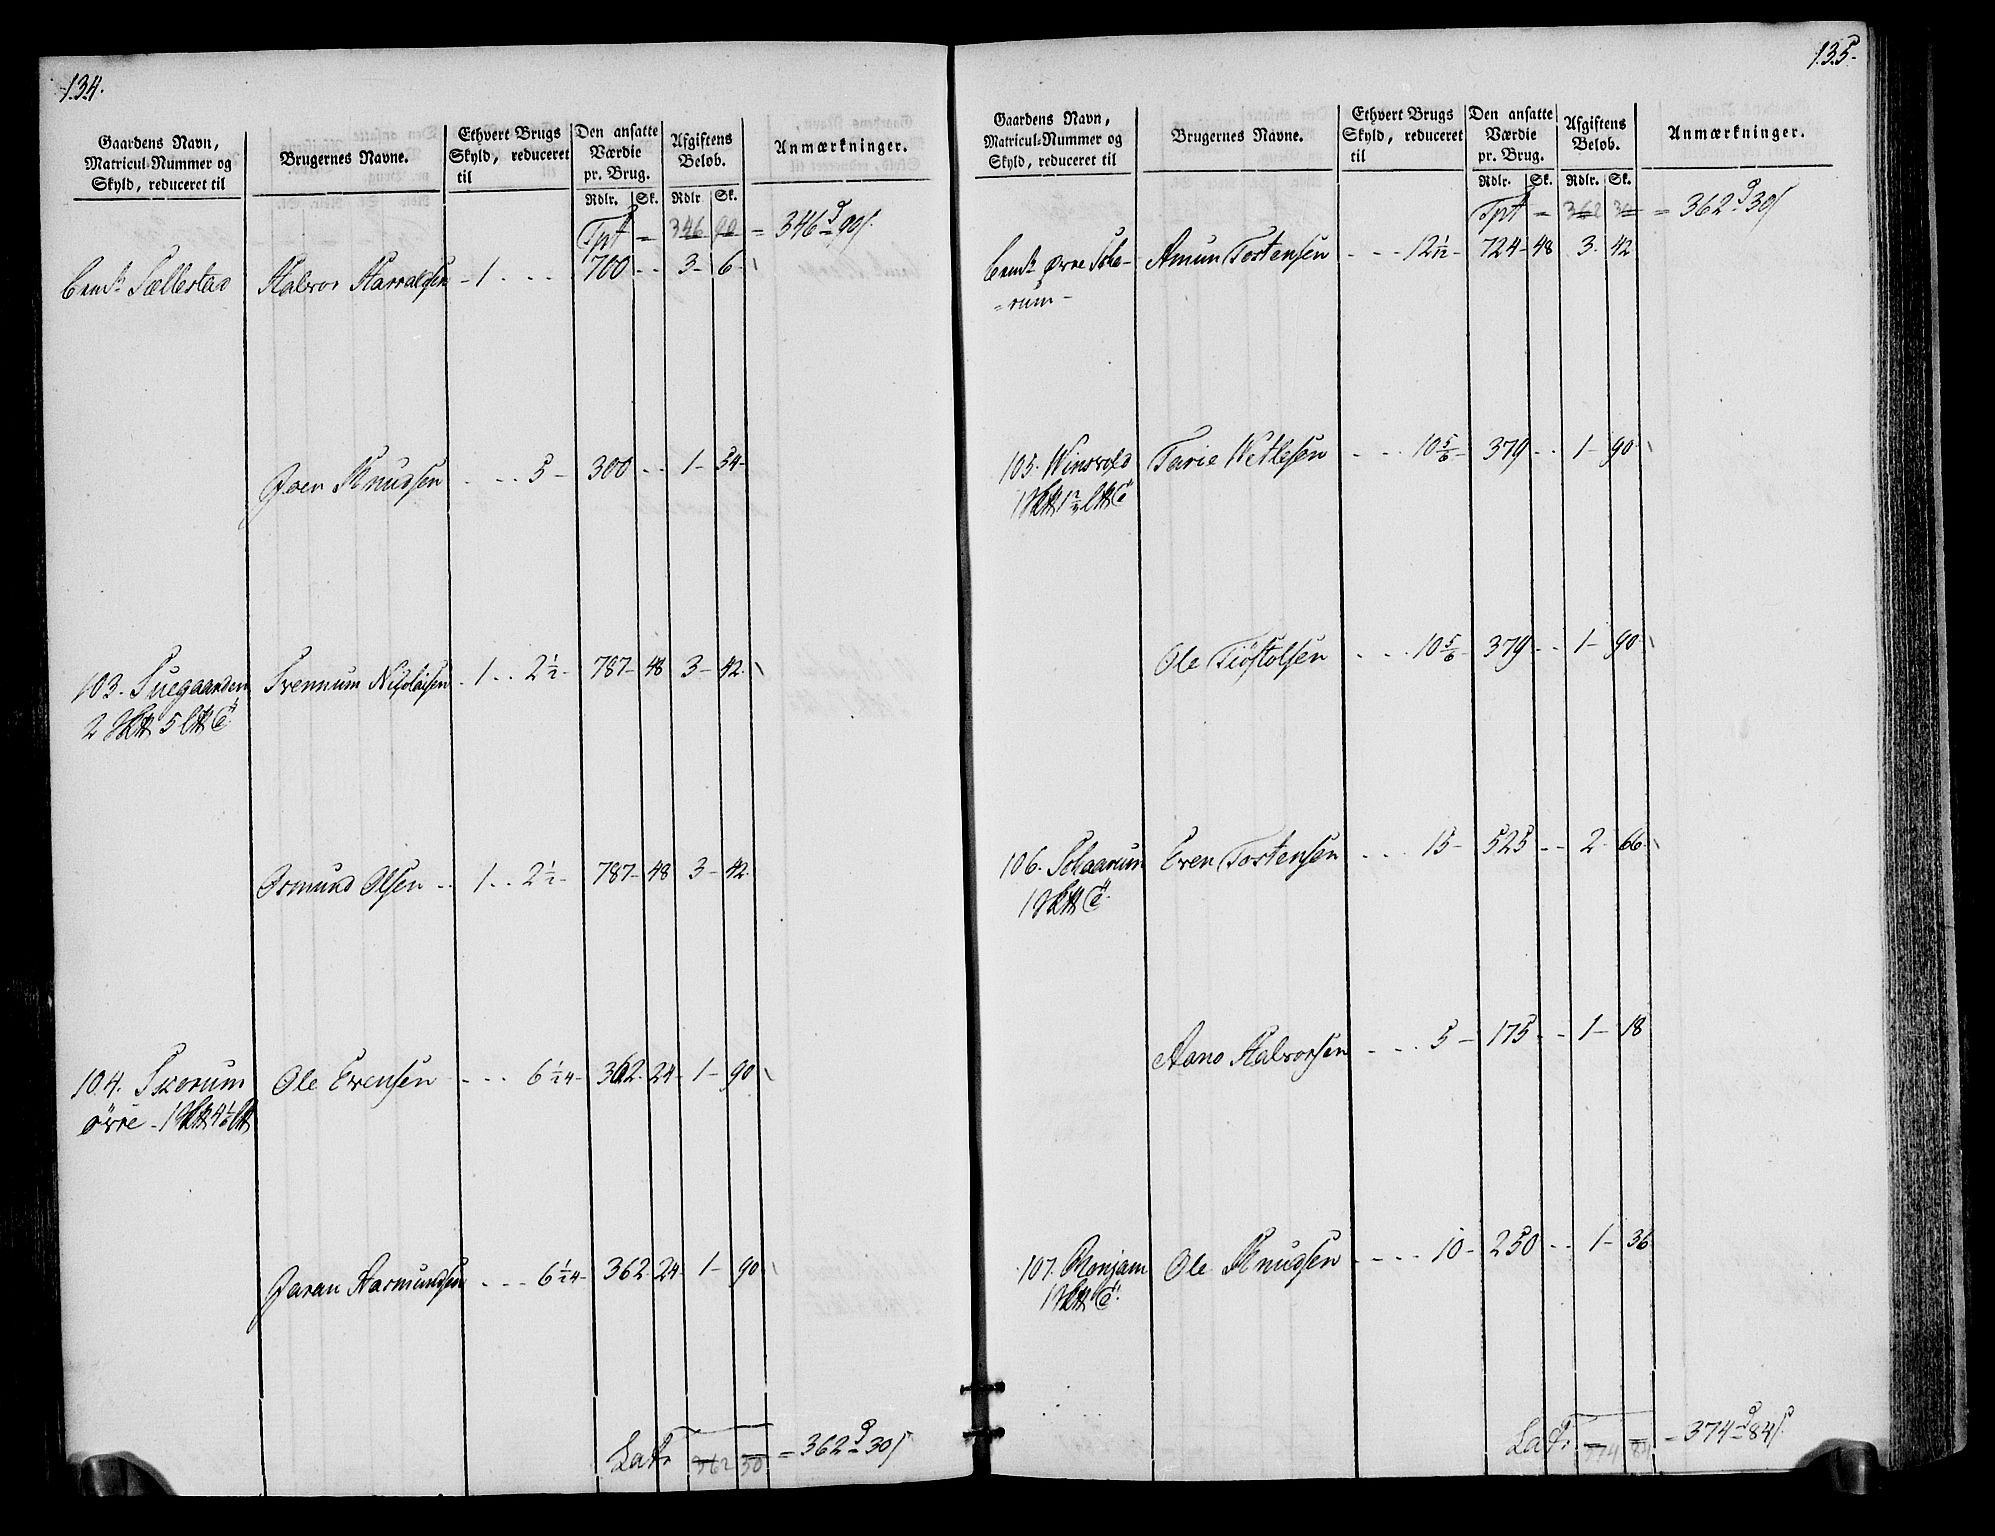 134.
Gaardens Navn,
Matricul-Nummer og
Skyld, reduceret til
Brugernes Navne.
Ethvert Brugs
Skyld, reduceret
til
Den ansatte
Værdie
pr. Brug.
Rdlr. Sk.
Afgiftens
Beløb.
Rdlr Sk.
Anmærkninger.
Tpt = 346 90 = 346 90
Sællestad Halvor Harraldsen - 1 . . . 700 - - 3 - 6 -
Joen Knudsen . - . . 5 - 300 - - 1 - 54 -
103. Suegaarden Svennum Nicolaisen . 1 . . 2½ - 787 - 48 3 - 42 -
2 5
Osmund Olsen - . 1 . . 2½ - 787 - 48 3 - 42
104. Skorum Ole Evensen - - - . 6 1/24 - 362 . 24 - 1 - 90
øvre - 1 4
Joran Aasmundsen . - - . 6 1/24 - 362 . 24 - 1 - 90
Lat. 362 30 = 362 30
135.
Gaardens Navn,
Matricul-Nummer og
Skyld, reduceret til
Brugernes Navne.
Ethvert Brugs
Skyld, reduceret
til
Den ansatte
Værdie
pr. Brug.
Rdlr. Sk.
Afgiftens
Beløb.
Rdlr. Sk.
Anmærkninger.
Tpt = 362 30 = 362 30
Øvre Amun Tostensen - - - 12 1/12 - 724 - 48 3 . 42
= rum -
105. Winsvold Tarie Wetlesen - - - . 10 5/6 - 379 . . 1 - 90
1
Ole Tiøstolsen . - - . 10 5/6 - 379 - - 1 - 90
106. Schaarum Even Tostensen . . - . 15 - 525 - - 2 - 66
1
Aano Halvorsen . . . 5 - 175 - - 1 - 18
107. Monjam Ole Knudsen . - - . 10 - 250 - - 1 - 36
1
Lat. 374 84 = 374 84